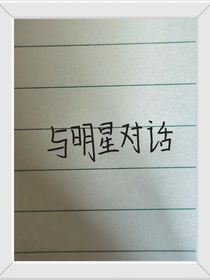 与明星对话